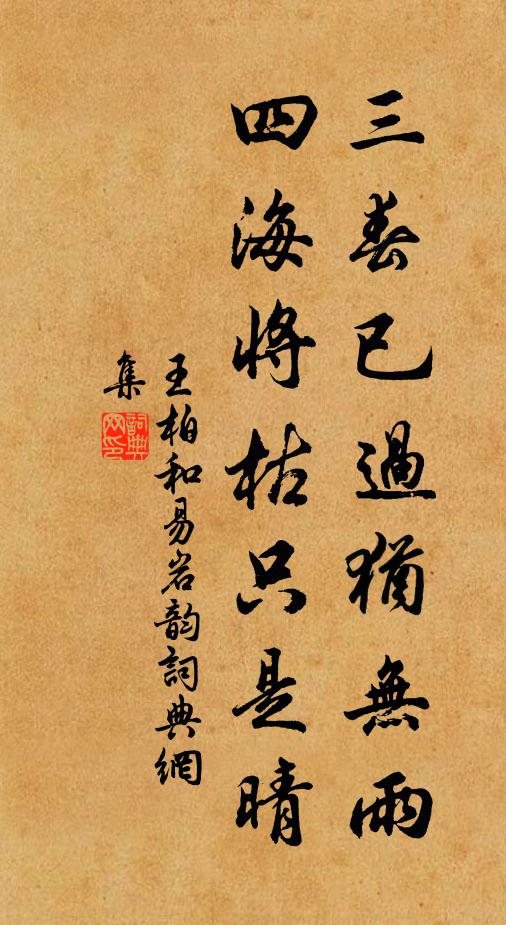 三春已過猶無雨
四海將枯只是晴
王柏和易岩韵詞典網
集
詞典
网印